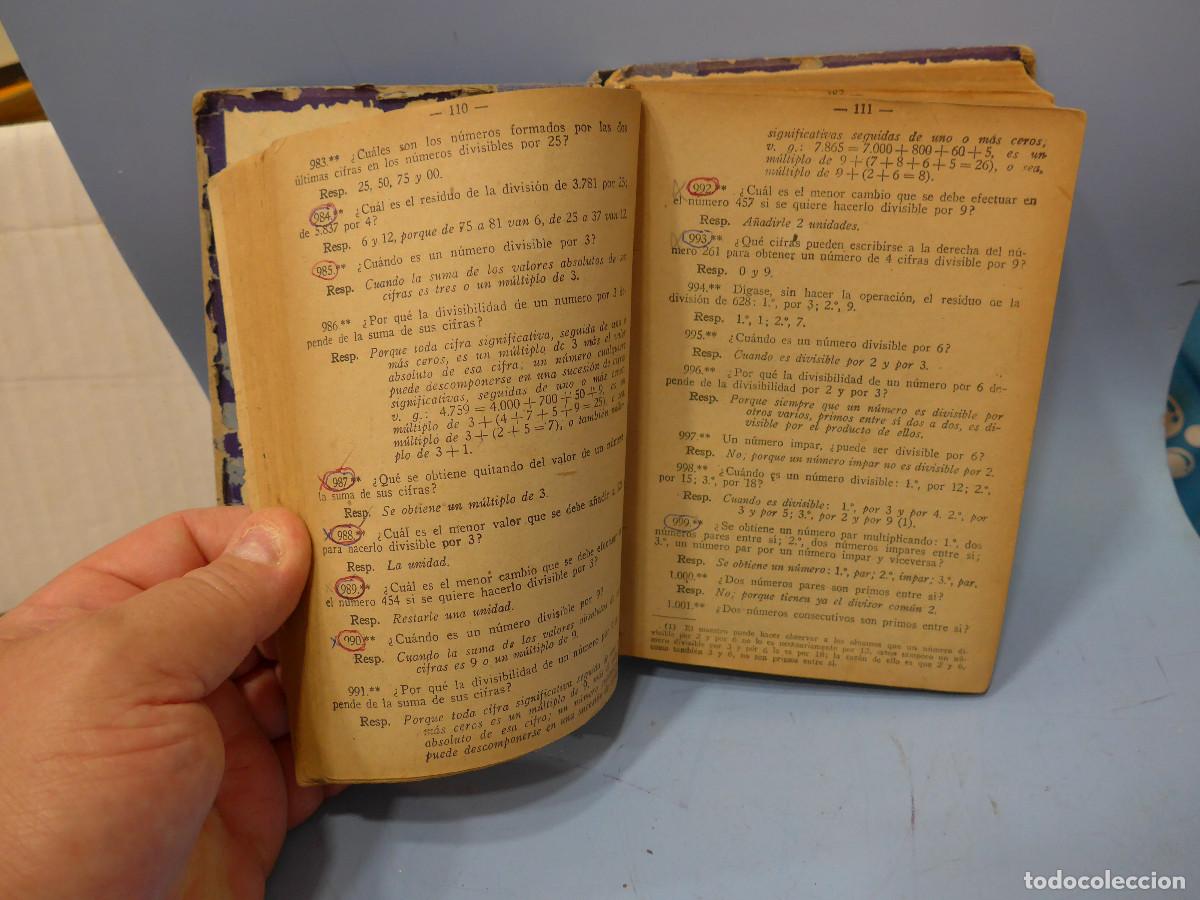 — 110 —
983.** ¿Cuáles son los números formados por las dos
últimas cifras en los números divisibles por 25?
Resp. 25, 50, 75 y 00.
984.** ¿Cuál es el residuo de la división de 3.781 por 25;
de 3.837 por 4?
Resp. 6 y 12, porque de 75 a 81 van 6, de 25 a 37 van 12
985.** ¿Cuándo es un número divisible por 3?
Resp. Cuando la suma de los valores absolutos de
cifras es tres o un múltiplo de 3.
986.** ¿Por qué la divisibilidad de un numero por 3
pende de la suma de sus cifras?
Resp. Porque toda cifra significativa, seguida de uno o
más ceros, es un múltiplo de 3 más el valor
absoluto de esa cifra; un número cualquiera
puede descomponerse en una sucesión de cifras
significativas, seguidas de uno o más ceros,
v. g.: 4.759 = 4.000 + 700 + 50 + 9, es un
múltiplo de 3 + (4 + 7 + 5 + 9 = 25), o sea,
múltiplo de 3 + (2 + 5 = 7), o también
plo de 3 + 1.
987.** ¿Qué se obtiene quitando del valor de un número
la suma de sus cifras?
Resp. Se obtiene un múltiplo de 3.
988.** ¿Cuál es el menor valor que se debe añadir a
para hacerlo divisible por 3?
Resp. La unidad.
989.** ¿Cuál es el menor cambio que se debe efectuar
el número 454 si se quiere hacerlo divisible por 3?
Resp. Restarle una unidad.
990.** ¿Cuándo es un número divisible por 9?
Resp. Cuando la suma de los valores absolutos de
cifras es 9 o un múltiplo de 9.
991.** ¿Por qué la divisibilidad de un número por 9
pende de la suma de sus cifras?
Resp. Porque toda cifra significativa seguida
más ceros es un múltiplo de 9, más
absoluto de esa cifra; un número
puede descomponerse en una sucesión
— 111 —
significativas seguidas de uno o más ceros,
v. g.: 7.865 = 7.000 + 800 + 60 + 5, es un
múltiplo de 9 + (7 + 8 + 6 + 5 = 26), o sea,
múltiplo de 9 + (2 + 6 = 8).
992.** ¿Cuál es el menor cambio que se debe efectuar en
el número 457 si se quiere hacerlo divisible por 9?
Resp. Añadirle 2 unidades.
993.** ¿Qué cifras pueden escribirse a la derecha del nú-
mero 261 para obtener un número de 4 cifras divisible por 9?
Resp. 0 y 9.
994.** Dígase, sin hacer la operación, el residuo de la
división de 628: 1.º, por 3; 2.º, 9.
Resp. 1.º, 1; 2.º, 7.
995.** ¿Cuándo es un número divisible por 6?
Resp. Cuando es divisible por 2 y por 3.
996.** ¿Por qué la divisibilidad de un número por 6 de-
pende de la divisibilidad por 2 y por 3?
Resp. Porque siempre que un número es divisible por
otros varios, primos entre sí dos a dos, es di-
visible por el producto de ellos.
997.** Un número impar, ¿puede ser divisible por 6?
Resp. No; porque un número impar no es divisible por 2.
998.** ¿Cuándo es un número divisible: 1.º, por 12; 2.º,
por 15; 3.º, por 18?
Resp. Cuando es divisible: 1.º, por 3 y por 4. 2.º, por
3 y por 5; 3.º, por 2 y por 9 (1).
999.** ¿Se obtiene un número par multiplicando: 1.º, dos
números pares entre sí; 2.º, dos números impares entre sí;
3.º, un número par por un número impar y viceversa?
Resp. Se obtiene un número: 1.º, par; 2.º, impar; 3.º, par.
1.000.** ¿Dos números pares son primos entre sí?
Resp. No; porque tienen ya el divisor común 2.
1.001.** ¿Dos números consecutivos son primos entre sí?
(1) El maestro puede hacer observar a los alumnos que un número di-
visible por 2 y por 6 no lo es necesariamente por 12, como tampoco un nú-
mero divisible por 3 y por 6 lo es por 18; la razón de ello es que 2 y 6,
como también 3 y 6, no son primos entre sí.
todocoleccion